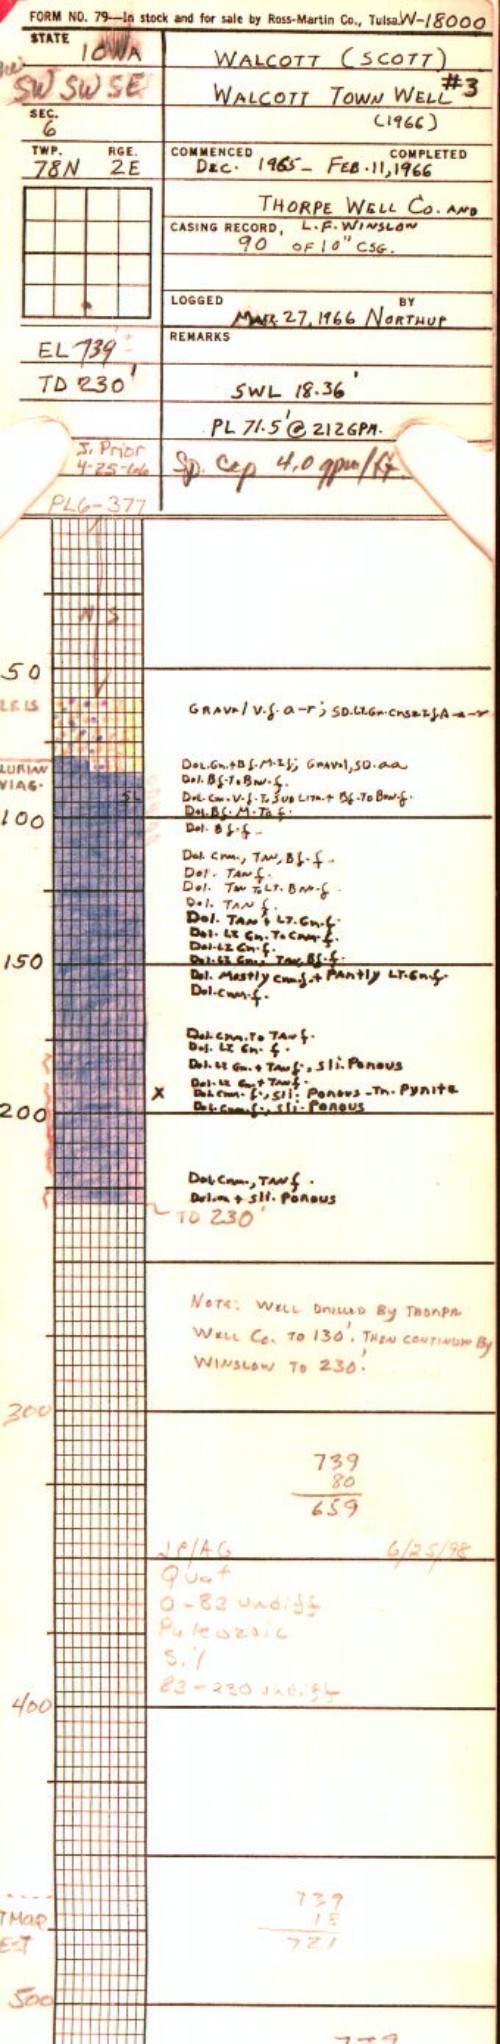 FORM NO. 79—In stock and for sale by Ross-Martin Co., Tulsa W-18000
STATE
IOWA
WALCOTT (SCOTT)
SW SW SE
WALCOTT TOWN WELL #3
SEC.
6
(1966)
TWP. RGE.
78N 2E
COMMENCED COMPLETED
DEC. 1965 - FEB. 11, 1966
THORPE WELL CO. AND
CASING RECORD, L.F. WINSLOW
90 OF 10" CSG.
LOGGED BY
MAR. 27, 1966 NORTHUP
REMARKS
EL 739'
TD 230'
SWL 18.36'
PL 71.5' @ 212 GPM.
J. Prior
4-25-66
Sp. Cap 4.0 gpm/ft.
PL6-377
N S
50
GRAVEL V.f. a-r; SD.
DOL. Gn. + Bf. M-; GRAVEL, SD. aa
DOL. Bf. To Brn. f.
DOL. Cm. V.f. To SUB LITH. + Bf. To Brn. f.
SL
DOL. Bf. M. To f.
100
DOL. Bf. f.
DOL. Crm., TAN, Bf. f.
DOL. TAN f.
DOL. TAN To LT. Brn. f.
DOL. TAN f.
DOL. TAN + LT. Gn. f.
DOL. LT Gn. To Crm. f.
DOL. LT Gn. f.
DOL. LT Gn., TAN, Bf. f.
150
DOL. Mostly Crm. f. + PARTLY LT. Gn. f.
DOL. Crm. f.
DOL. Crm. To TAN f.
DOL. LT Gn. f.
DOL. LT Gn. + TAN f., sli. Porous
DOL. LT Gn. + TAN f.
X DOL. Crm. f., sli. Porous - Tr. Pyrite
200
DOL. Crm. f., sli. Porous
DOL. Crm., TAN f.
DOL. m + sli. Porous
TD 230'
NOTE: WELL DRILLED BY THORPE
WELL CO. TO 130'. THEN CONTINUED By
WINSLOW TO 230'.
300
739
80
659
JP/AG 6/25/98
Quat
0-83 undiff
Paleozoic
Sil
83-230 undiff
400
739
18
721
500
739